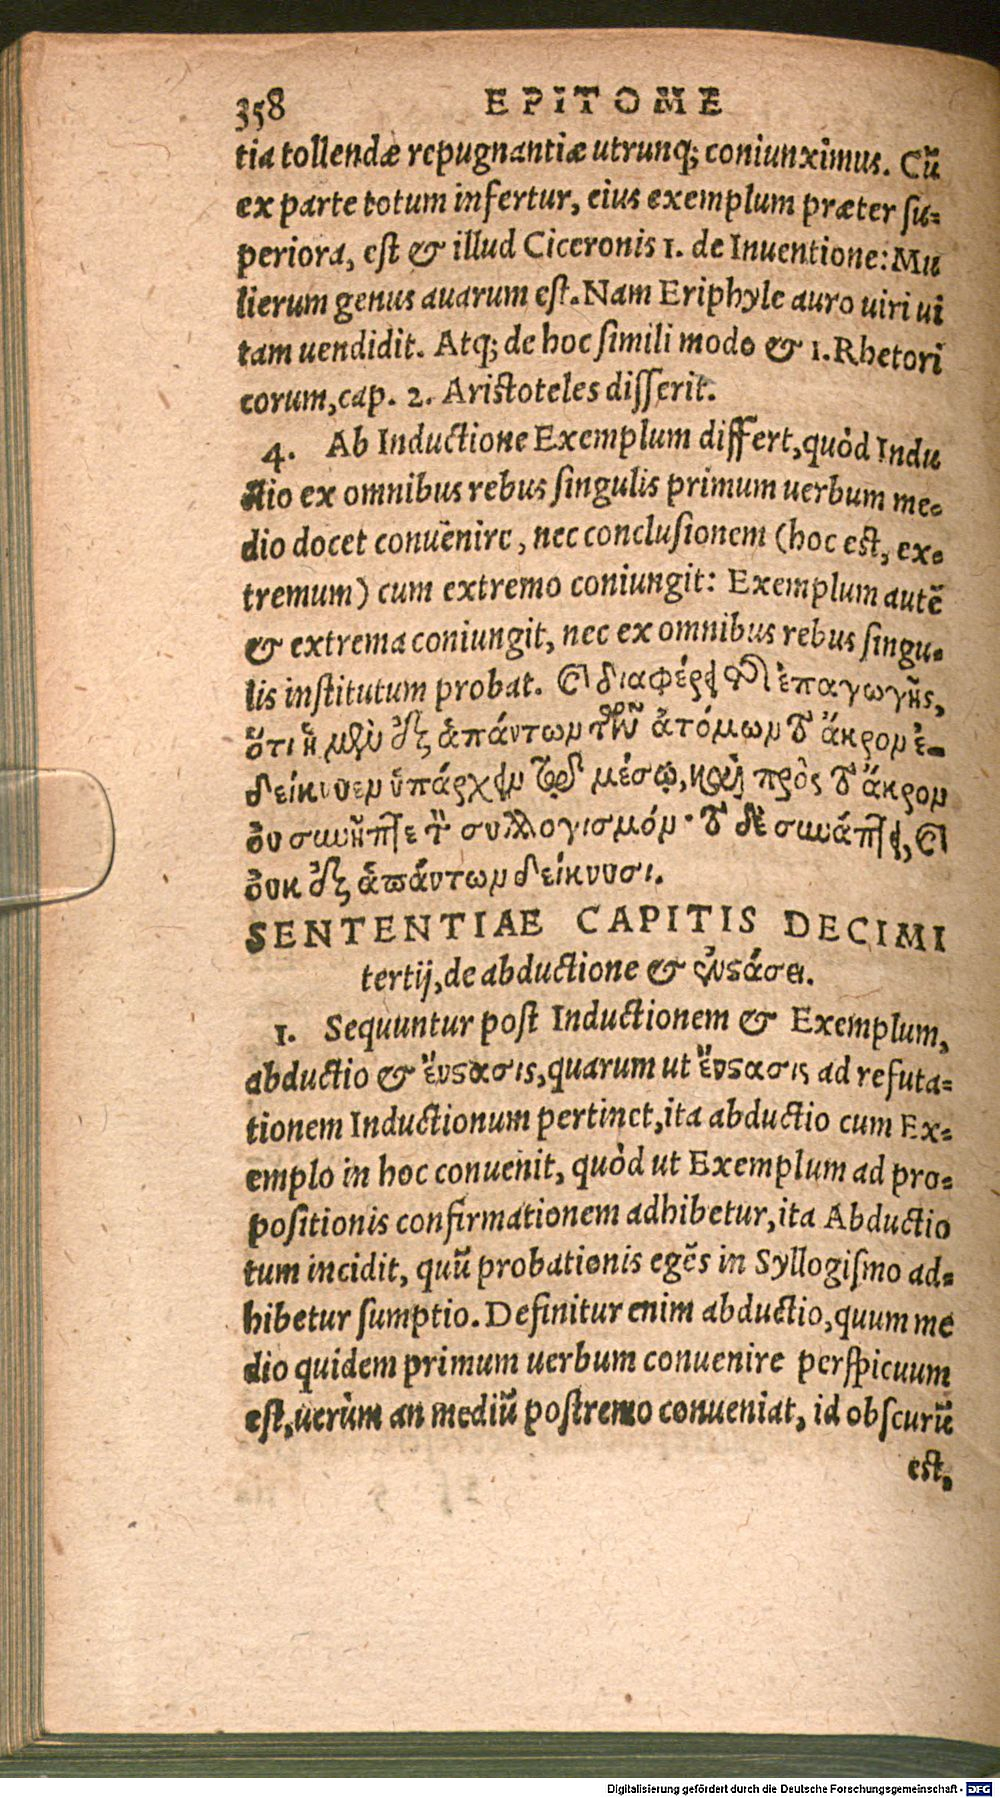 358 EPITOME
tia tollendæ repugnantiæ utrunq; coniunximus. Cũ
ex parte totum infertur, eius exemplum præter su-
periora, est & illud Ciceronis 1. de Inuentione: Mu
lierum genus auarum est. Nam Eriphyle auro uiri ui
tam uendidit. Atq; de hoc simili modo & 1. Rhetori
corum, cap. 2. Aristoteles disserit.
4. Ab Inductione Exemplum differt, quòd Indu
ctio ex omnibus rebus singulis primum uerbum me-
dio docet conuenire, nec conclusionem (hoc est, ex-
tremum) cum extremo coniungit: Exemplum autẽ
& extrema coniungit, nec ex omnibus rebus singu-
lis institutum probat. καὶ διαφέρει τῆς ἐπαγωγῆς,
ὅτι ἡ μὲν ἐξ ἁπάντων τῶν ἀτόμων τὸ ἄκρον ἐ-
δείκνυεν ὑπάρχειν τῷ μέσῳ, καὶ πρὸς τὸ ἄκρον
οὐ συνῆπτε τὸν συλλογισμόν· τὸ δὲ συνάπτει, καὶ
οὐκ ἐξ ἁπάντων δείκνυσι.
SENTENTIAE CAPITIS DECIMI
tertij, de abductione & ἐνστάσει.
1. Sequuntur post Inductionem & Exemplum,
abductio & ἔνστασις, quarum ut ἔνστασις ad refuta-
tionem Inductionum pertinet, ita abductio cum Ex-
emplo in hoc conuenit, quòd ut Exemplum ad pro-
positionis confirmationem adhibetur, ita Abductio
tum incidit, quũ probationis egẽs in Syllogismo ad-
hibetur sumptio. Definitur enim abductio, quum me
dio quidem primum uerbum conuenire perspicuum
est, uerùm an mediũ postremo conueniat, id obscurũ
est,
Digitalisierung gefördert durch die Deutsche Forschungsgemeinschaft - DFG